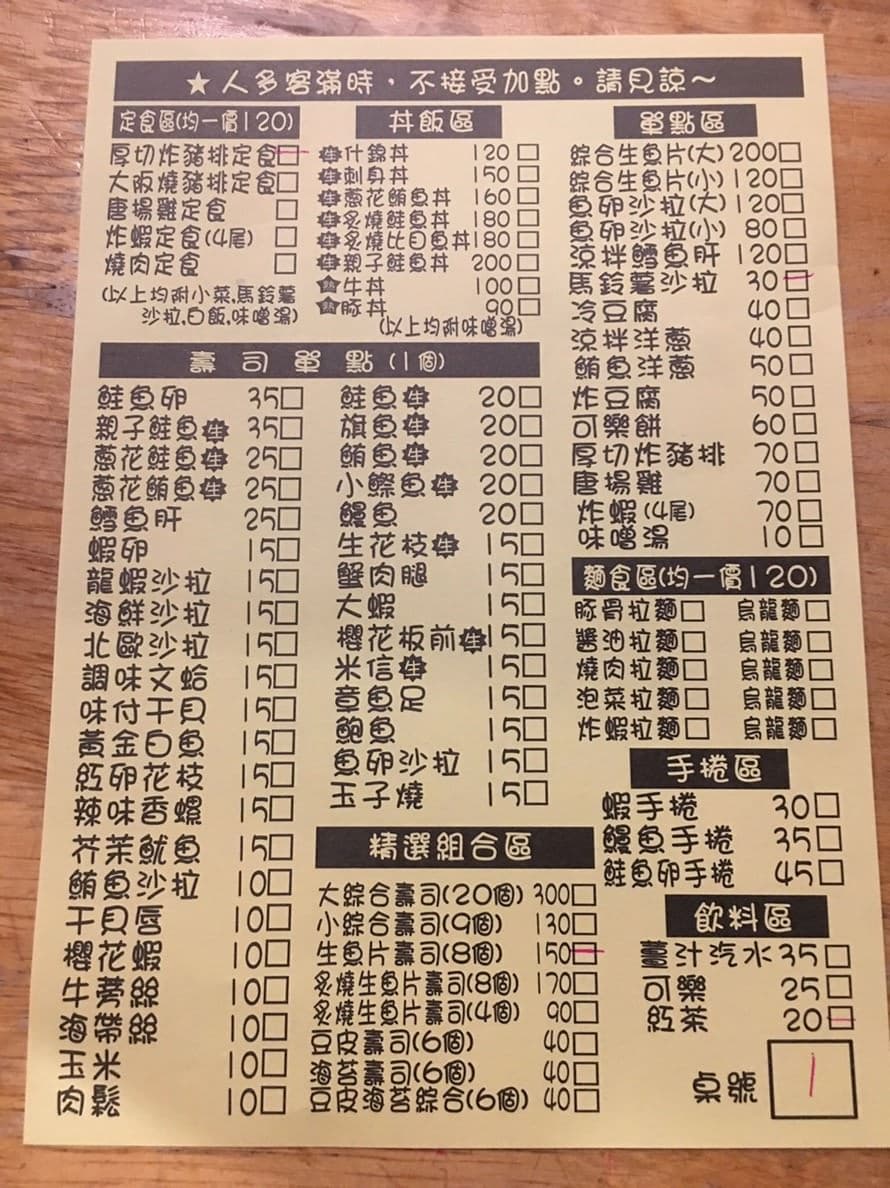 ★人多客滿時，不接受加點。請見諒～
定食區(均一價120)
厚切炸豬排定食□
大阪燒豬排定食□
唐揚雞定食 □
炸蝦定食(4尾) □
燒肉定食 □
(以上均附小菜,馬鈴薯
沙拉,白飯,味噌湯)
丼飯區
生什錦丼 120□
生刺身丼 150□
生蔥花鮪魚丼 160□
生炙燒鮭魚丼 180□
生炙燒比目魚丼180□
生親子鮭魚丼 200□
牛丼 100□
豚丼 90□
(以上均附味噌湯)
單點區
綜合生魚片(大)200□
綜合生魚片(小)120□
魚卵沙拉(大)120□
魚卵沙拉(小) 80□
涼拌鱈魚肝 120□
馬鈴薯沙拉 30□
冷豆腐 40□
涼拌洋蔥 40□
鮪魚洋蔥 50□
炸豆腐 50□
可樂餅 60□
厚切炸豬排 70□
唐揚雞 70□
炸蝦(4尾) 70□
味噌湯 10□
壽司單點(1個)
鮭魚卵 35□
親子鮭魚生 35□
蔥花鮭魚生 25□
蔥花鮪魚生 25□
鱈魚肝 25□
蝦卵 15□
龍蝦沙拉 15□
海鮮沙拉 15□
北歐沙拉 15□
調味文蛤 15□
味付干貝 15□
黃金白魚 15□
紅卵花枝 15□
辣味香螺 15□
芥茉魷魚 15□
鮪魚沙拉 10□
干貝唇 10□
櫻花蝦 10□
牛蒡絲 10□
海帶絲 10□
玉米 10□
肉鬆 10□
鮭魚生 20□
旗魚生 20□
鮪魚生 20□
小鰶魚生 20□
鰻魚 20□
生花枝生 15□
蟹肉腿 15□
大蝦 15□
櫻花板前生15□
米信生 15□
章魚足 15□
鮑魚 15□
魚卵沙拉 15□
玉子燒 15□
精選組合區
大綜合壽司(20個) 300□
小綜合壽司(9個) 130□
生魚片壽司(8個) 150□
炙燒生魚片壽司(8個) 170□
炙燒生魚片壽司(4個) 90□
豆皮壽司(6個) 40□
海苔壽司(6個) 40□
豆皮海苔綜合(6個) 40□
麵食區(均一價120)
豚骨拉麵□ 烏龍麵□
醬油拉麵□ 烏龍麵□
燒肉拉麵□ 烏龍麵□
泡菜拉麵□ 烏龍麵□
炸蝦拉麵□ 烏龍麵□
手捲區
蝦手捲 30□
鰻魚手捲 35□
鮭魚卵手捲 45□
飲料區
薑汁汽水35□
可樂 25□
紅茶 20□
桌號 1